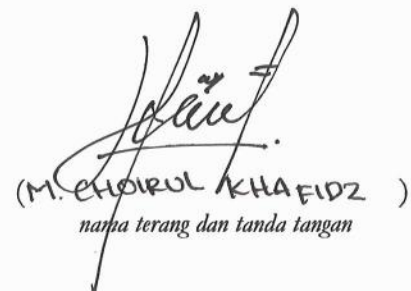 (M. CHOIRUL KHAFIDZ )
nama terang dan tanda tangan